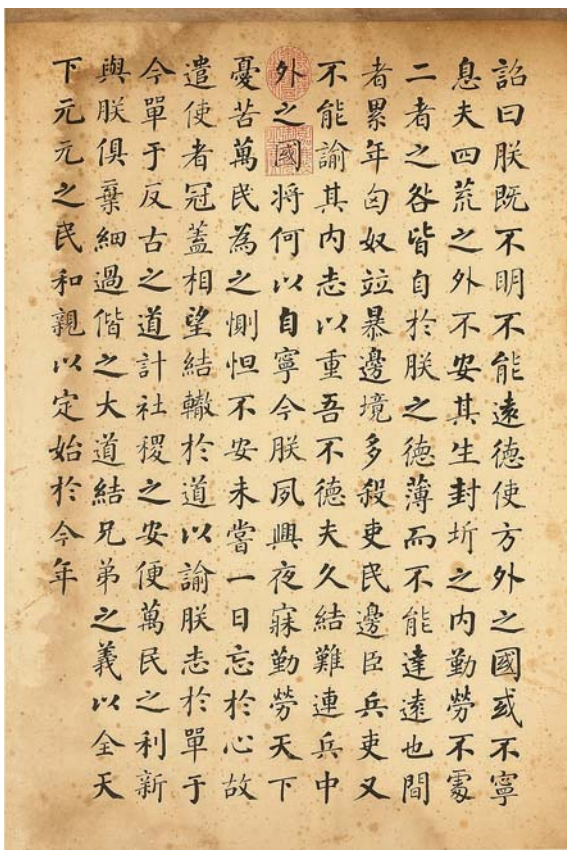 詔曰朕既不明不能遠德使方外之國或不寧
息夫四荒之外不安其生封圻之内勤勞不䖏
二者之咎皆自於朕之德薄而不能達遠也間
者累年匈奴竝暴邊境多殺吏民邊臣兵吏又
不能諭其内志以重吾不德夫久結難連兵中
外之國將何以自寧今朕夙興夜寐勤勞天下
憂苦萬民為之惻怛不安未嘗一日忘於心故
遣使者冠蓋相望結轍於道以諭朕志於單于
今單于反古之道計社稷之安便萬民之利新
與朕俱棄細過偕之大道結兄弟之義以全天
下元元之民和親以定始於今年